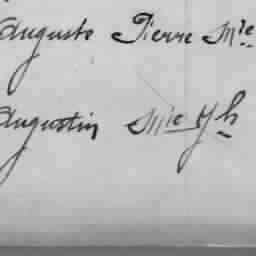 Auguste Pierre Mie
Augustin Mie Yh